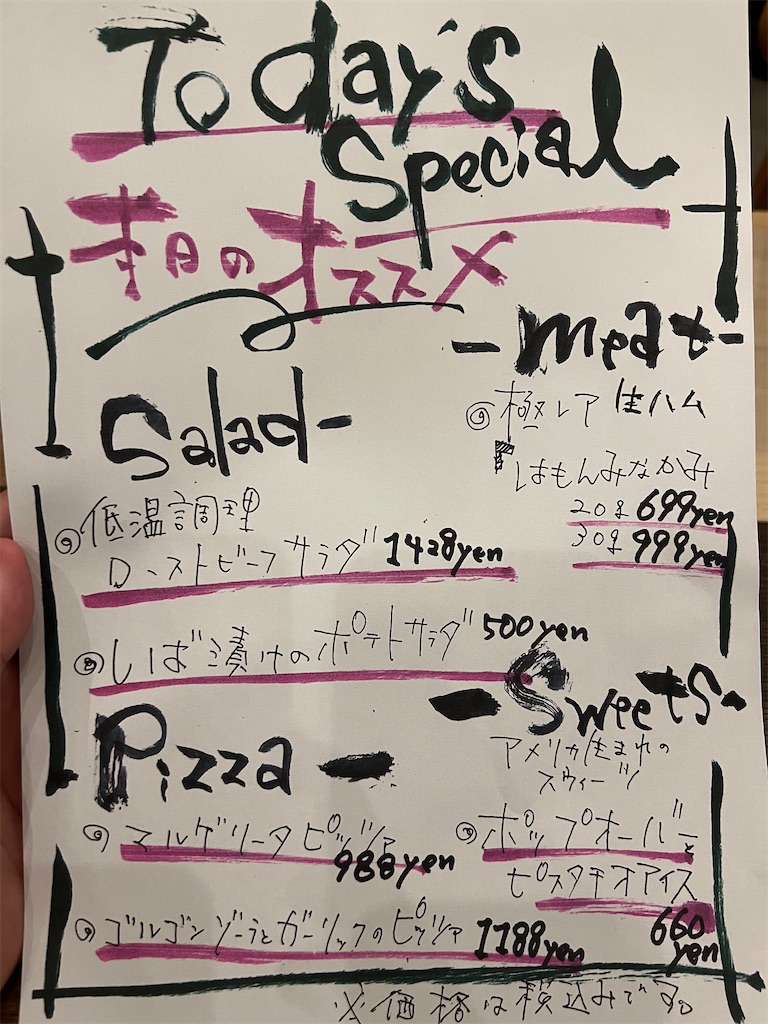 Today's
Special
本日のオススメ
Salad-
低温調理
ローストビーフサラダ 1428yen
しば漬けのポテトサラダ 500yen
Pizza -
マルゲリータピッツァ
988yen
ゴルゴンゾーラとガーリックのピッツァ 1188yen
-meat-
極レア生ハム
『はもんみなかみ
20g 699yen
30g 999yen
-Sweets-
アメリカ生まれの
スウィーツ
ポップオーバーと
ピスタチオアイス
660
yen
※価格は税込みです。